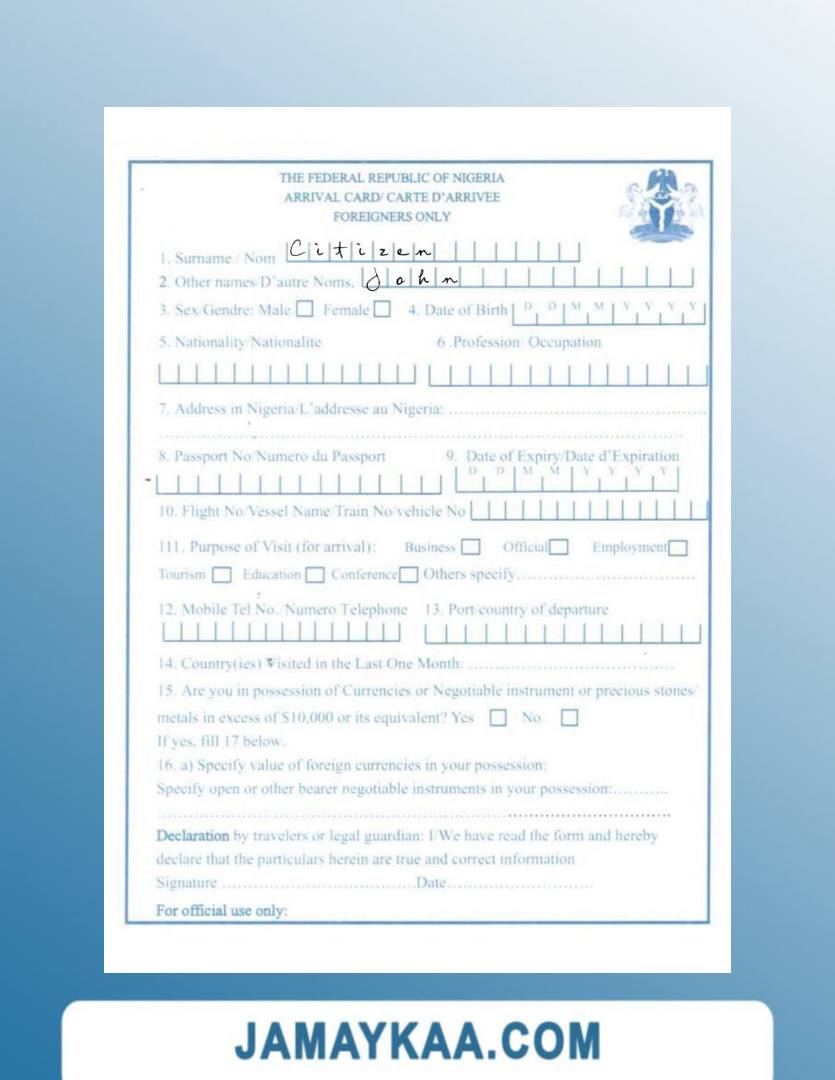 THE FEDERAL REPUBLIC OF NIGERIA
ARRIVAL CARD/ CARTE D'ARRIVEE
FOREIGNERS ONLY
1. Surname / Nom Citizen
2. Other names/D'autre Noms. John
3. Sex/Gendre: Male Female 4. Date of Birth D D M M Y Y Y Y
5. Nationality/Nationalite 6 .Profession/ Occupation
7. Address in Nigeria/L'addresse au Nigeria: ......................................................
..............................................................................................................
8. Passport No/Numero du Passport 9. Date of Expiry/Date d'Expiration
D D M M Y Y Y Y
10. Flight No/Vessel Name/Train No/vehicle No
111. Purpose of Visit (for arrival): Business Official Employment
Tourism Education Conference Others specify.....................................
12. Mobile Tel No./Numero Telephone 13. Port/country of departure
14. Country(ies) Visited in the Last One Month: ...........................................
15. Are you in possession of Currencies or Negotiable instrument or precious stones/
metals in excess of $10,000 or its equivalent? Yes No
If yes, fill 17 below.
16. a) Specify value of foreign currencies in your possession:
Specify open or other bearer negotiable instruments in your possession:...........
..............................................................................................................
Declaration by travelers or legal guardian: I/We have read the form and hereby
declare that the particulars herein are true and correct information
Signature .......................................Date.............................
For official use only:
JAMAYKAA.COM